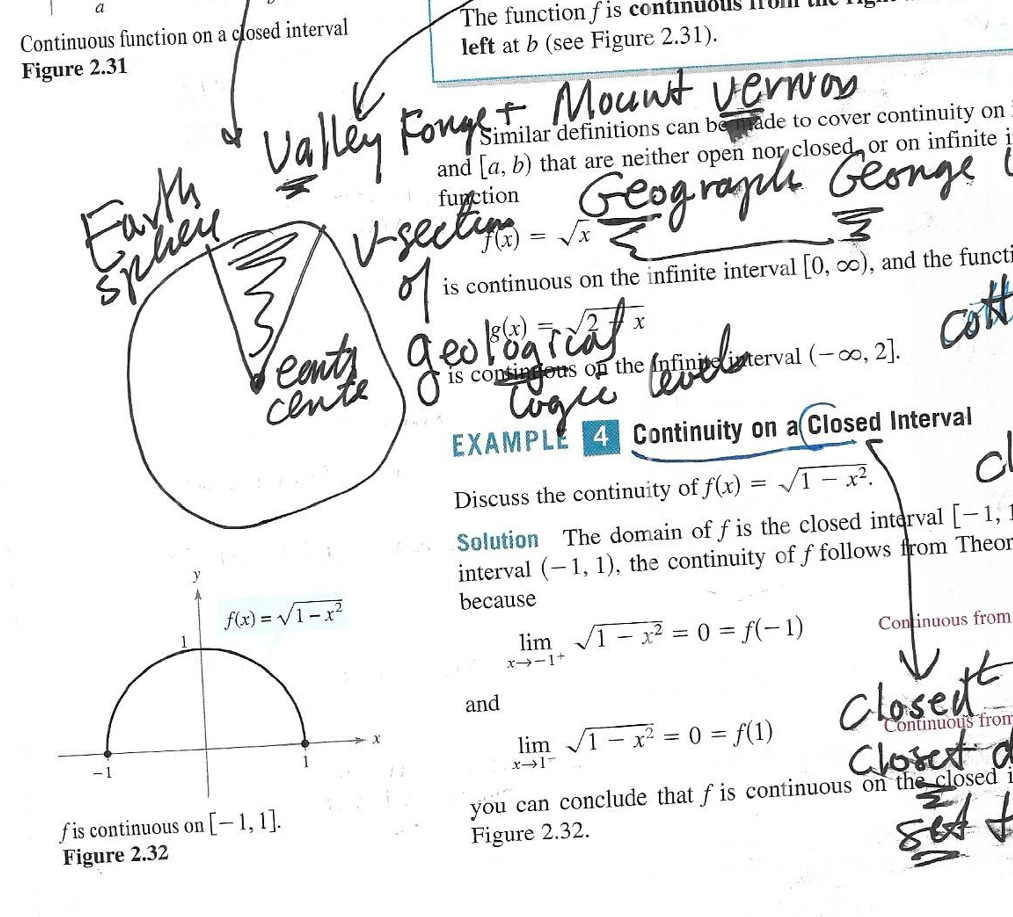 a
Continuous function on a closed interval
Figure 2.31
The function f is continuous from the right
left at b (see Figure 2.31).
Valley Forge + Mount Vernon
Similar definitions can be made to cover continuity on
and [a, b) that are neither open nor closed, or on infinite
function
Geograph George
Earth
sphere
V-section
f(x) = √x
of
is continuous on the infinite interval [0, ∞), and the functi
g(x) = √2 - x
geological
is continuous on the infinite interval (−∞, 2].
cott
logic levels
EXAMPLE 4 Continuity on a Closed Interval
Discuss the continuity of f(x) = √1 − x².
Solution The domain of f is the closed interval [−1, 1
interval (−1, 1), the continuity of f follows from Theor
because
lim x→−1⁺ √1 − x² = 0 = f(−1)
Continuous from
and
Closed t
lim x→1⁻ √1 − x² = 0 = f(1)
Continuous from
Closet d
you can conclude that f is continuous on the closed i
set t
Figure 2.32.
y
f(x) = √1 − x²
1
x
−1
1
f is continuous on [−1, 1].
Figure 2.32